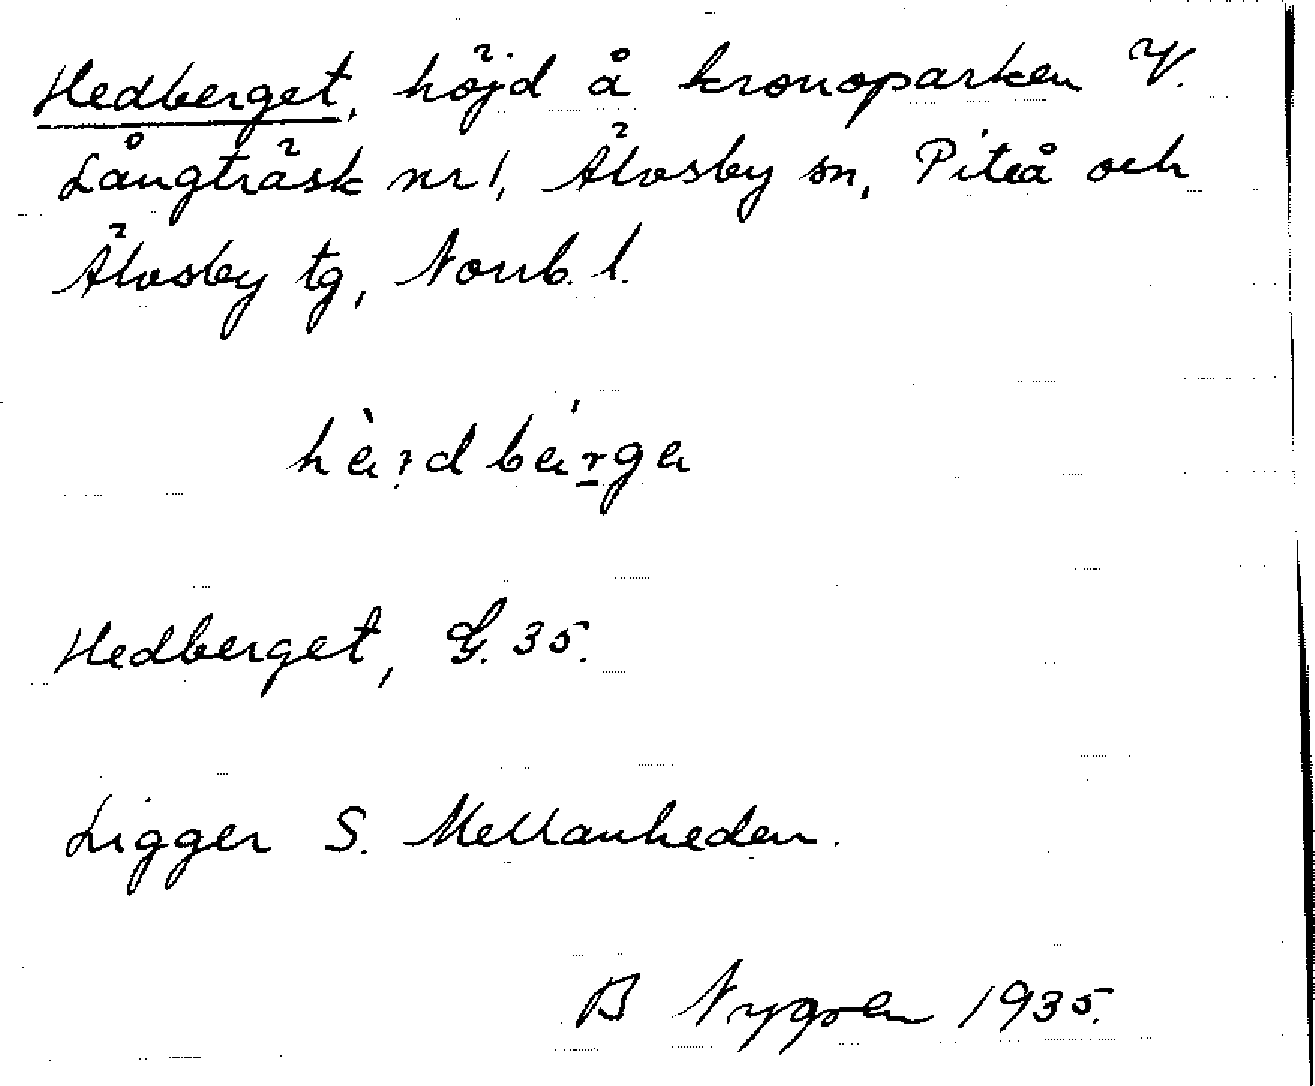 Hedberget, höjd å kronoparken V.
Långträsk nr 1, Älvsby sn, Piteå och
Älvsby tg, Norrb. l.
Hedberget, G. 35.
Ligger S. Mellanheden.
B Nygren 1935.